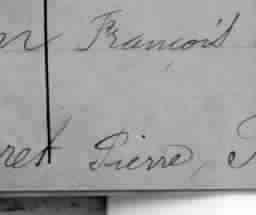 François
ret Pierre,